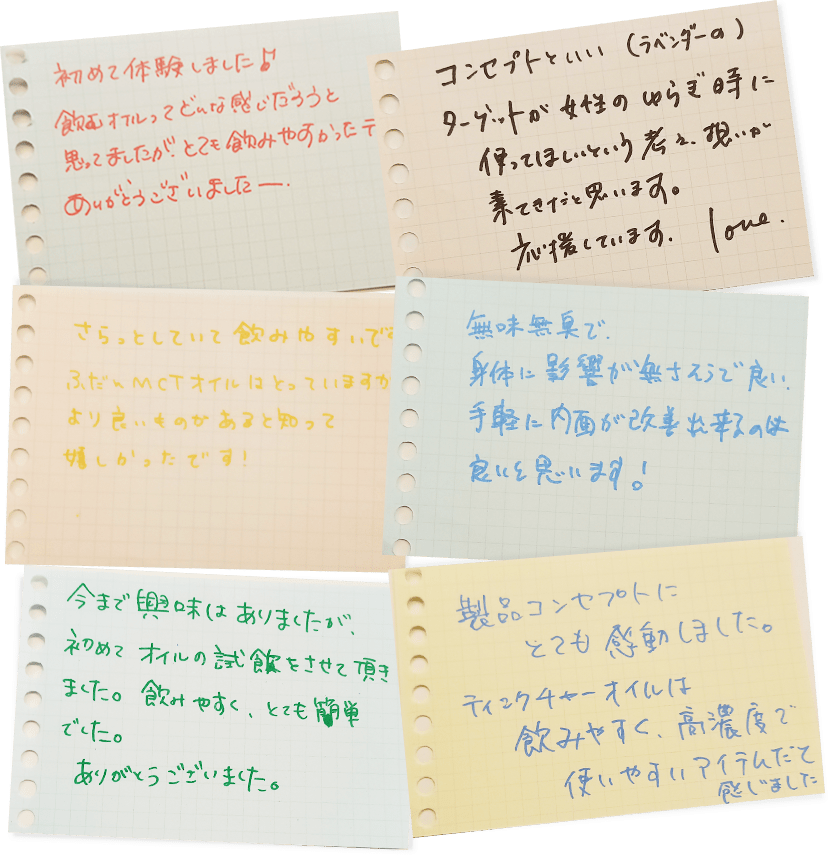 初めて体験しました♪
飲むオイルってどんな感じだろうと
思ってましたが、とても飲みやすかったデ
ありがとうございましたー.
コンセプトといい（ラベンダーの）
ターゲットが女性のゆらぎ時に
使ってほしいという考え、想いが
素てきだと思います。
応援しています. love.
さらっとしていて飲みやすいです
ふだんMCTオイルはとっていますが
より良いものがあると知って
嬉しかったです!
無味無臭で、
身体に影響が無さそうで良い、
手軽に内面が改善出来るのは
良いと思います!
今まで興味はありましたが、
初めてオイルの試飲をさせて頂き
ました。飲みやすく、とても簡単
でした。
ありがとうございました。
製品コンセプトに
とても感動しました。
ティンクチャーオイルは
飲みやすく、高濃度で
使いやすいアイテムだと
感じました